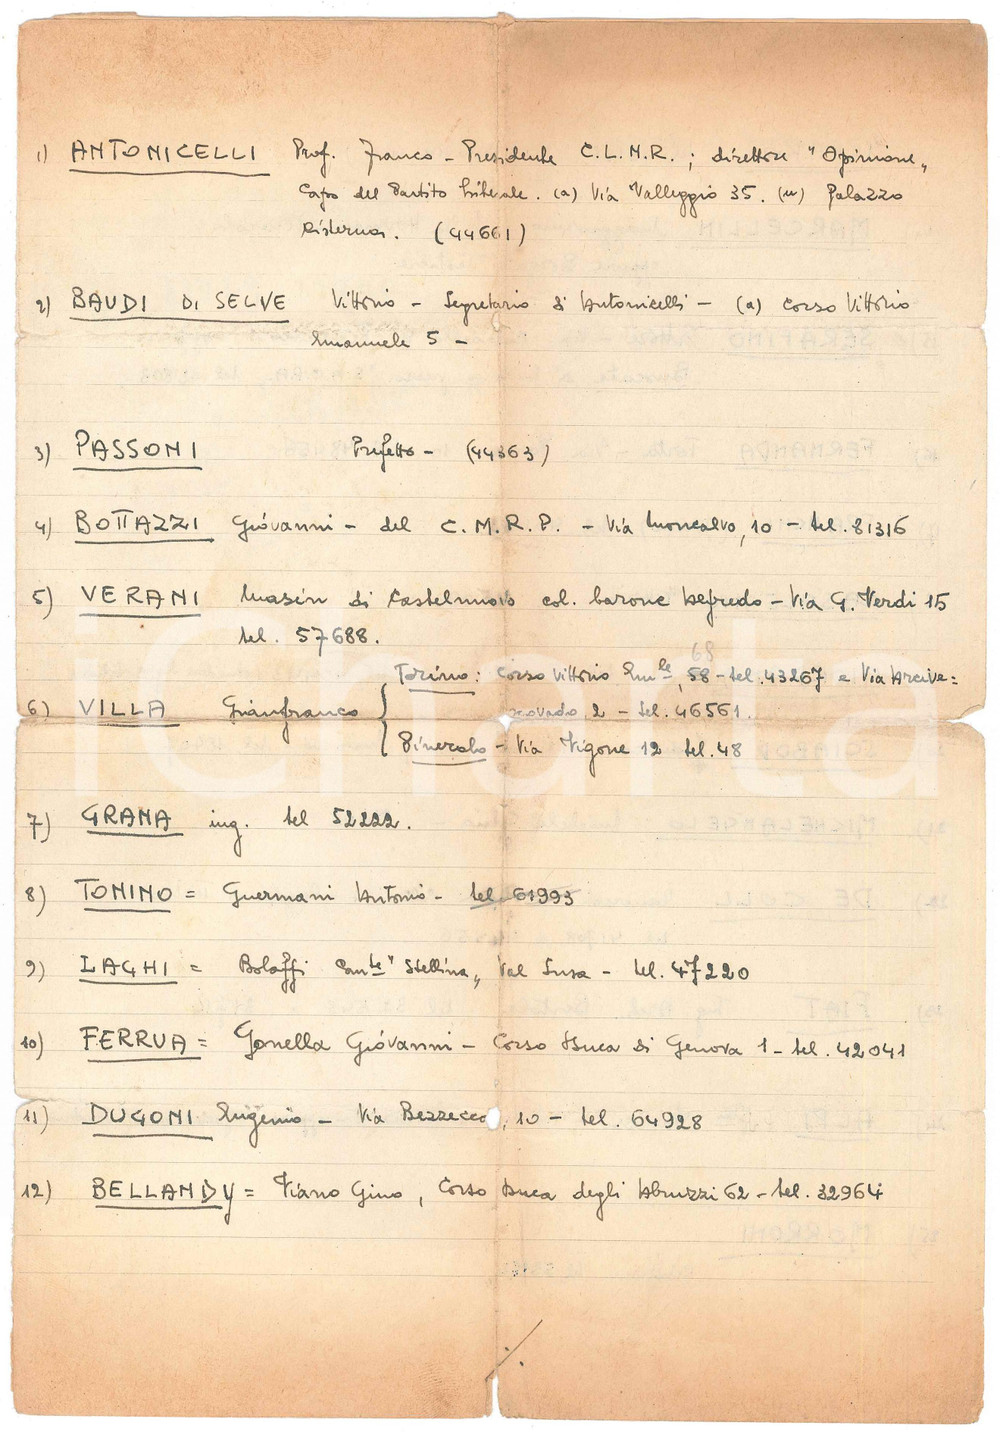 1) ANTONICELLI Prof. Franco - Presidente C.L.N.R. ; direttore "Opinione„
Capo del Partito Liberale. (a) Via Valleggio 35. (u) Palazzo
Cisterna. (44661)
2) BAUDI DI SELVE Vittorio - Segretario di Antonicelli - (a) Corso Vittorio
Emanuele 5 -
3) PASSONI Prefetto - (44363)
4) BOTTAZZI Giovanni - del C.M.R.P. - Via Moncalvo, 10 - tel. 81316
5) VERANI Masin di Castelnuovo col. barone Alfredo - Via G. Verdi 15
tel. 57688.
68
Torino: Corso Vittorio Em.le, 58 - tel. 43267 e Via Arcive=
6) VILLA Gianfranco
scovado, 2 - tel. 46561.
Pinerolo - Via Vigone 12 tel. 48
7) GRANA ing. tel 52222.
8) TONINO = Guermani Antonio - tel 61993
9) LAGHI = Bolaffi Com.te "Stellina„ Val Susa - tel. 47220
10) FERRUA = Gonella Giovanni - Corso Duca di Genova 1 - tel. 42041
11) DUGONI Eugenio - Via Bezzecca, 10 - tel. 64928
12) BELLANDY = Viano Gino, Corso Duca degli Abruzzi 62 - tel. 32964
./.
iCharta